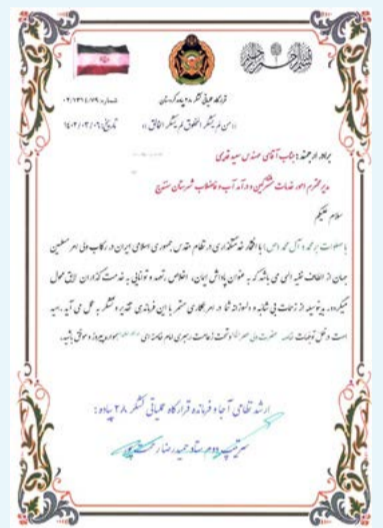 بسم الله الرحمن الرحیم
قرارگاه عملیاتی لشکر ۲۸ پیاده کردستان
شماره:
«من لم یشکر المخلوق لم یشکر الخالق»
تاریخ: ۱۴۰۲/۰۳/۰۶
برادر ارجمند: جناب آقای مهندس سعید
مدیر محترم امور خدمات مشترکین و درآمد آب و فاضلاب شهرستان سنندج
سلام علیکم
با صلوات بر محمد و آل محمد (ص) با افتخار خدمتگذاری در نظام مقدس جمهوری اسلامی ایران در رکاب ولی امر مسلمین
جهان از الطاف خفیه الهی می باشد که به عنوان پاداش ایمان، اخلاص، تعهد و توانایی به خدمت گذاران لایق محول
میگردد. بدینوسیله از زحمات بی شائبه و دلسوزانه شما در امر همکاری مستمر با این فرماندهی تقدیر و تشکر به عمل می آید. امید
است در ظل توجهات خاصه حضرت ولی عصر و تحت زعامت رهبری امام خامنه ای همواره پیروز و موفق باشید.
ارشد نظامی آجا و فرمانده قرارگاه عملیاتی لشکر ۲۸ پیاده:
سرتیپ دوم ستاد حمیدرضا